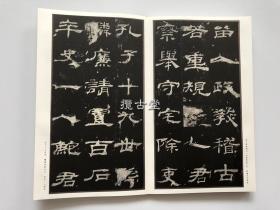 留人政教稽古
若重規矩乙君
察舉守宅除吏
孔子十九世孫
麟廉請置百石
卒史一人鮑君
攬古堂